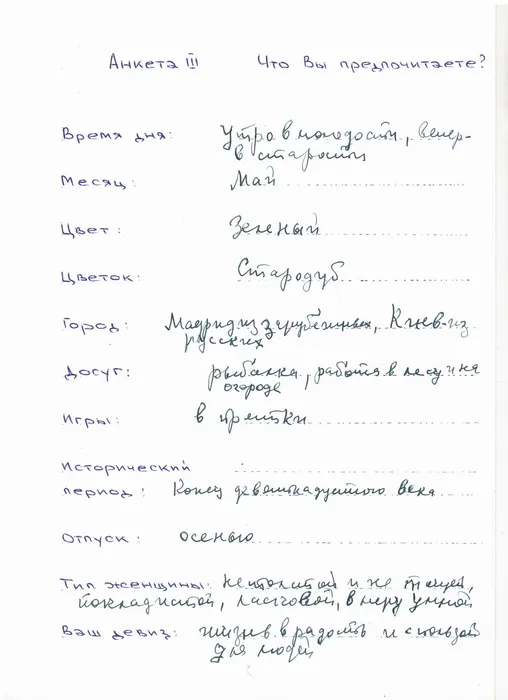 Анкета III Что Вы предпочитаете?
Время дня: Утро в молодости, вечер-
в старости
Месяц: Май
Цвет: Зеленый
Цветок: Стародуб
Город: Мадрид из зарубежных, Киев-из
русских
Досуг: рыбалка, работа в лесу и на
огороде
Игры: в прятки
Исторический
период: Конец девятнадцатого века
Отпуск: осенью
Тип женщины: не толстой и не тощей,
покладистой, ласковой, в меру умной
Ваш девиз: жизнь в радость и с пользой
для людей